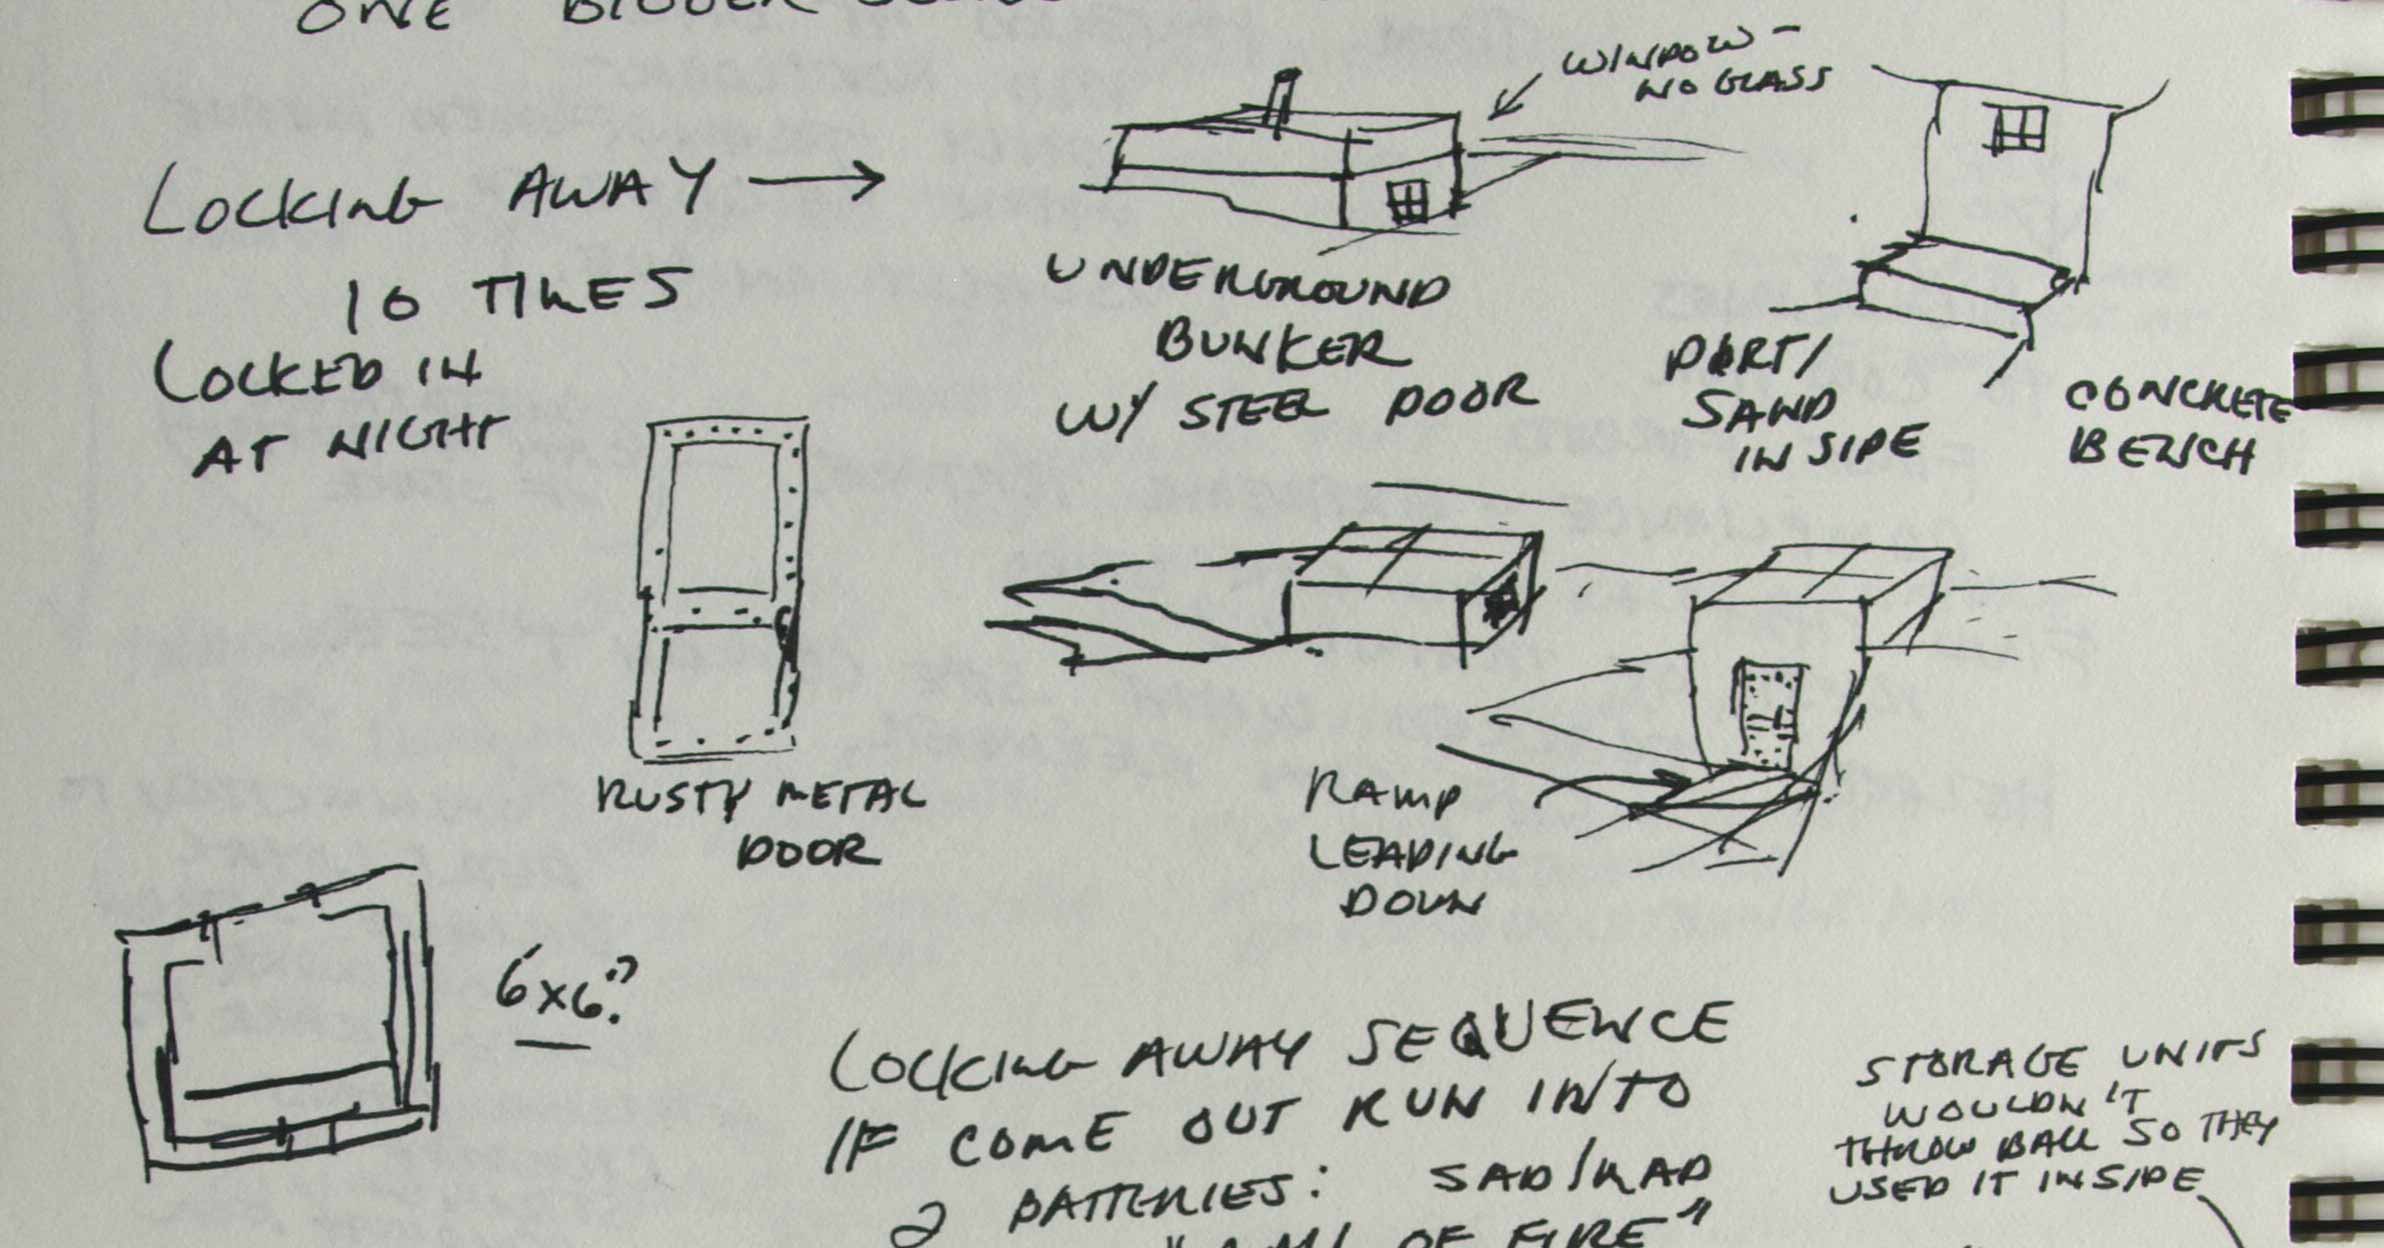 ONE BIGGER
LOCKING AWAY →
10 TIMES
LOCKED IN
AT NIGHT
WINDOW -
NO GLASS
UNDERGROUND
BUNKER
W/ STEEL DOOR
DIRT/
SAND
INSIDE
CONCRETE
BENCH
RUSTY METAL
DOOR
RAMP
LEADING
DOWN
6x6?
LOCKING AWAY SEQUENCE
IF COME OUT RUN INTO
2 BATTERIES: SAD/RAD
OF FIRE"
STORAGE UNITS
WOULDN'T
THROW BALL SO THEY
USED IT INSIDE